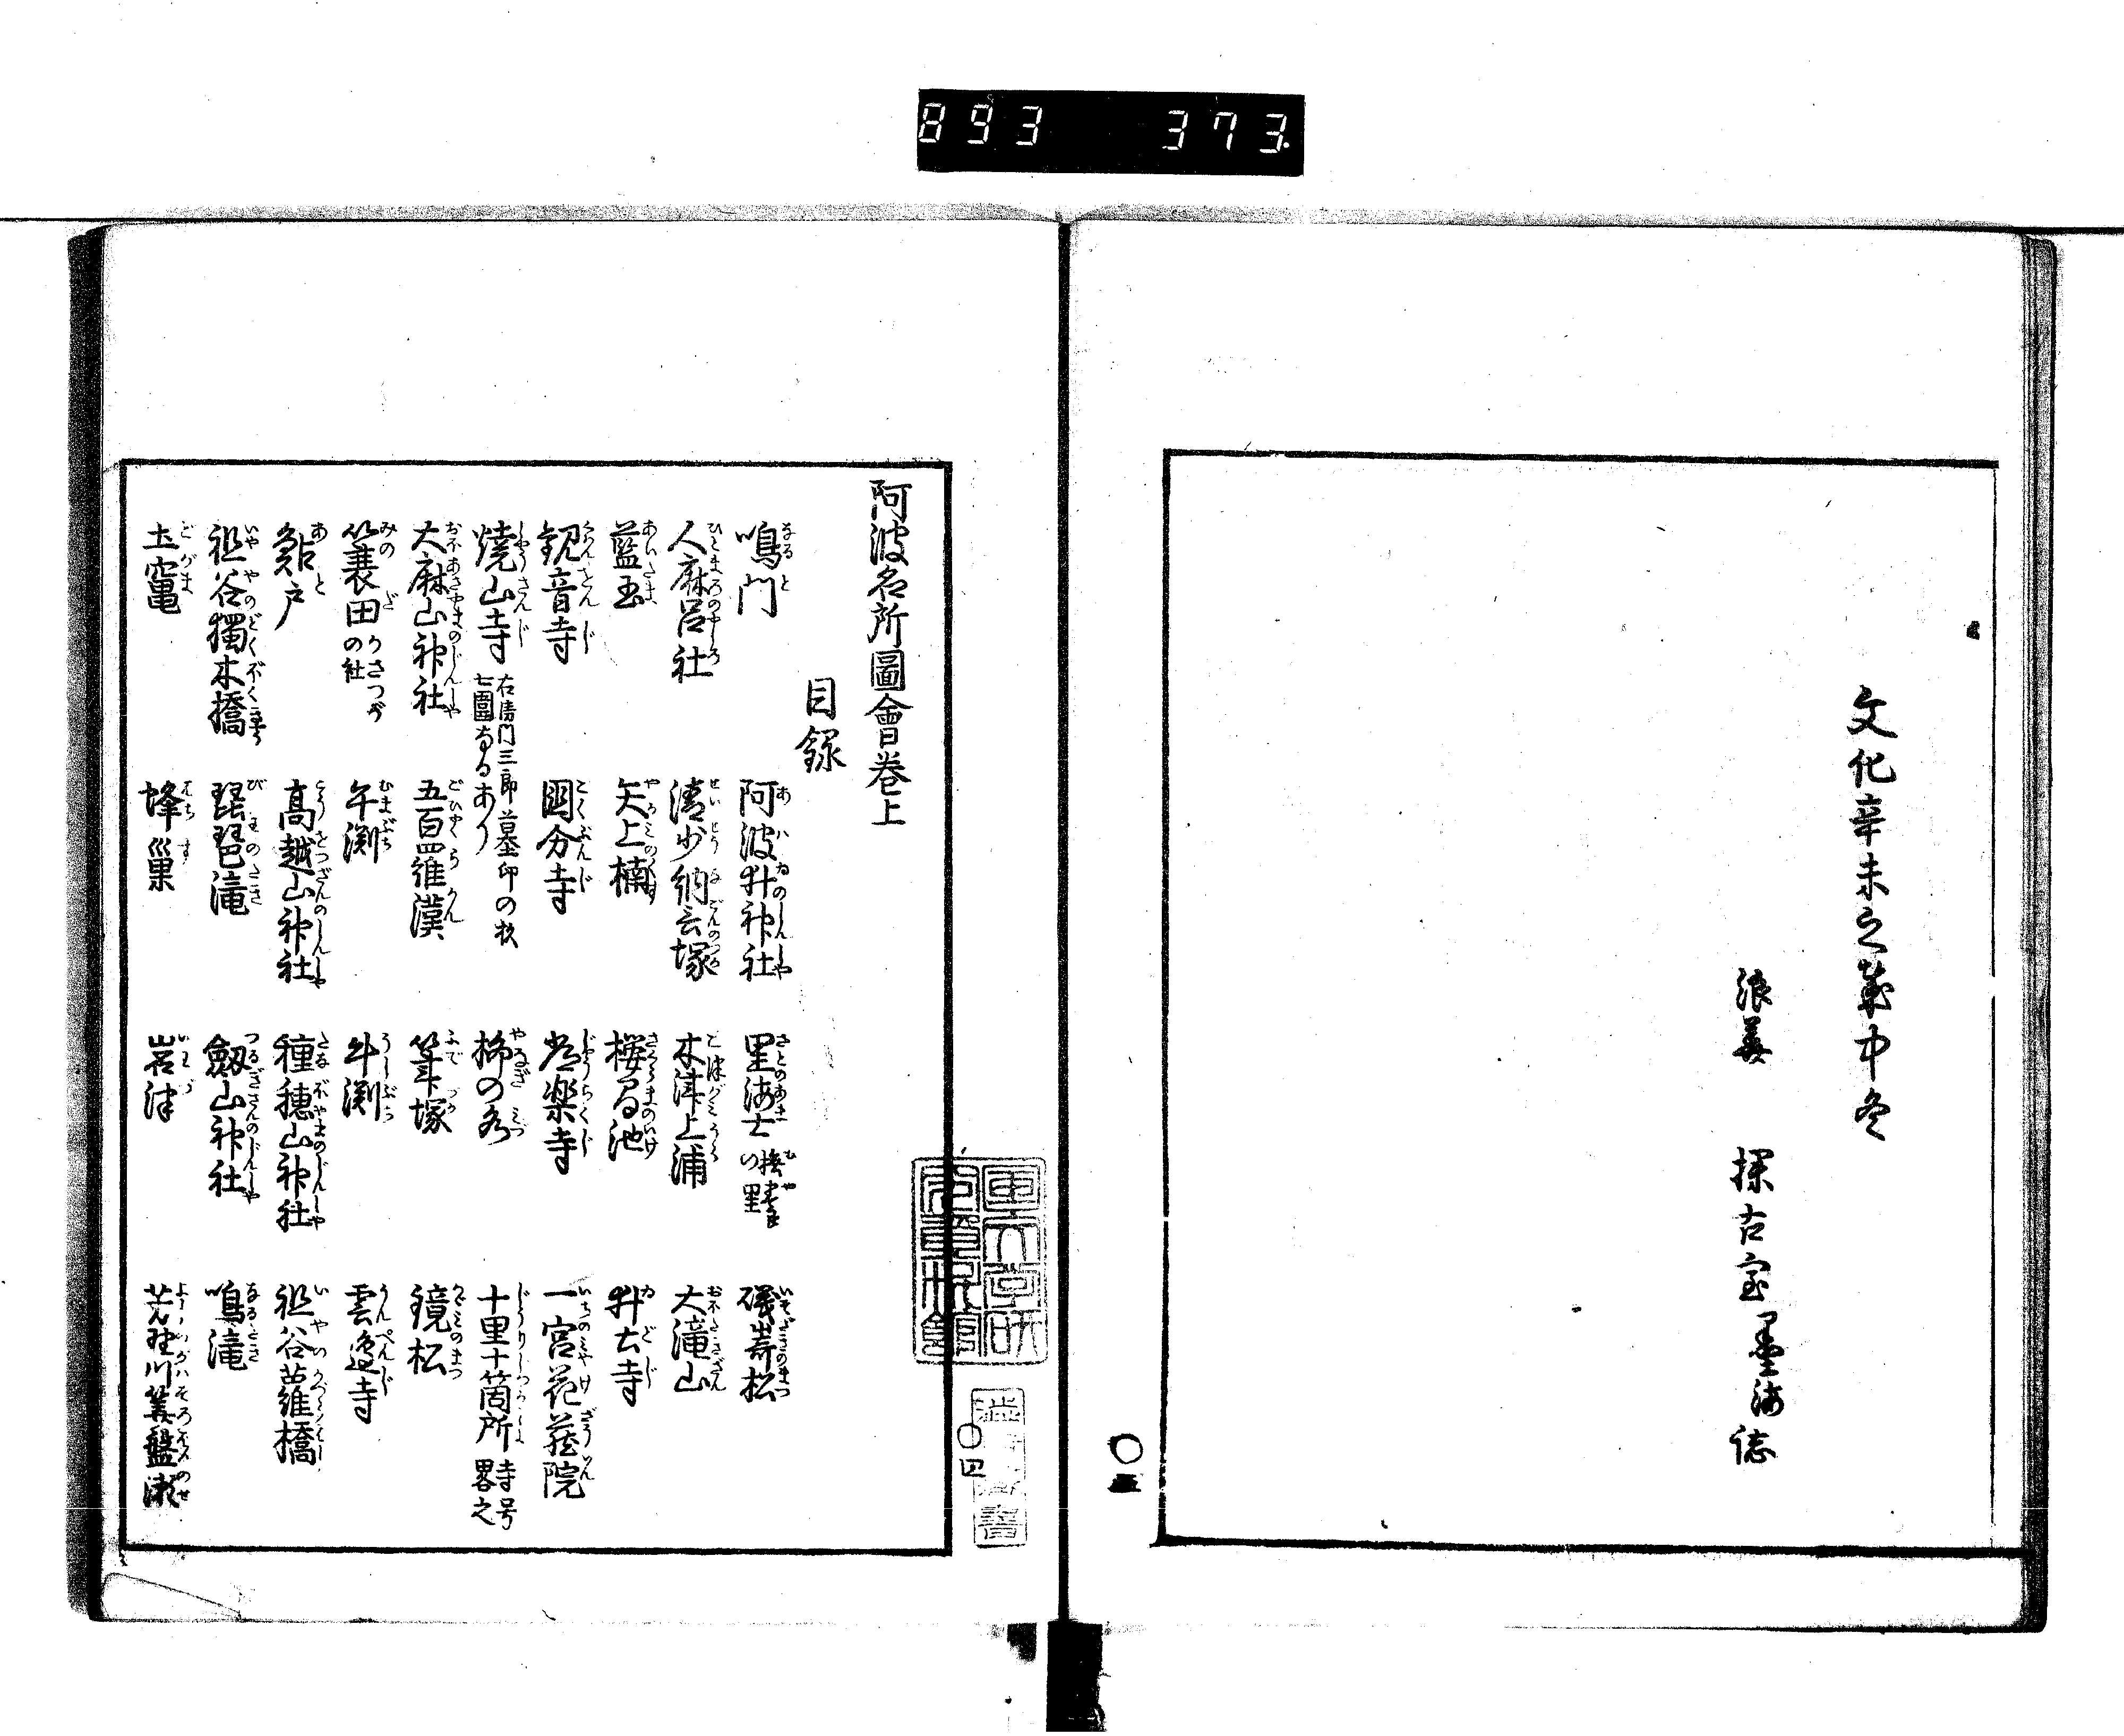 893 373
文化辛未之歳中冬
浪華 探古室墨海誌
〇三
阿波名所圖會卷上
目録
鳴門 阿波井神社 里海士 撫養の里 磯嵜松
人麻呂社 清少納言塚 木津上浦 大滝山
藍玉 矢上楠 桜間池 井土寺
観音寺 國分寺 常楽寺 一宮花蔵院
焼山寺 右衛門三郎墓印の杉七圍なるあり 柳の水 十里十箇所 寺号畧之
大麻山神社 五百羅漢 筆塚 鏡松
簑田の社 午渕 牛渕 雲邊寺
鮎戸 高越山神社 種穂山神社 祖谷葛羅橋
祖谷獨木橋 琵琶滝 劔山神社 鳴滝
土竈 蜂巣 岩津 芳野川算盤瀬
〇四